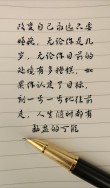 改变自己永远只要
倾注，无论你是几
岁，无论你目前的
处境有多糟糕，如
果你认定了目标，
到一步一步地往前
走，人生随时都有
翻盘的可能